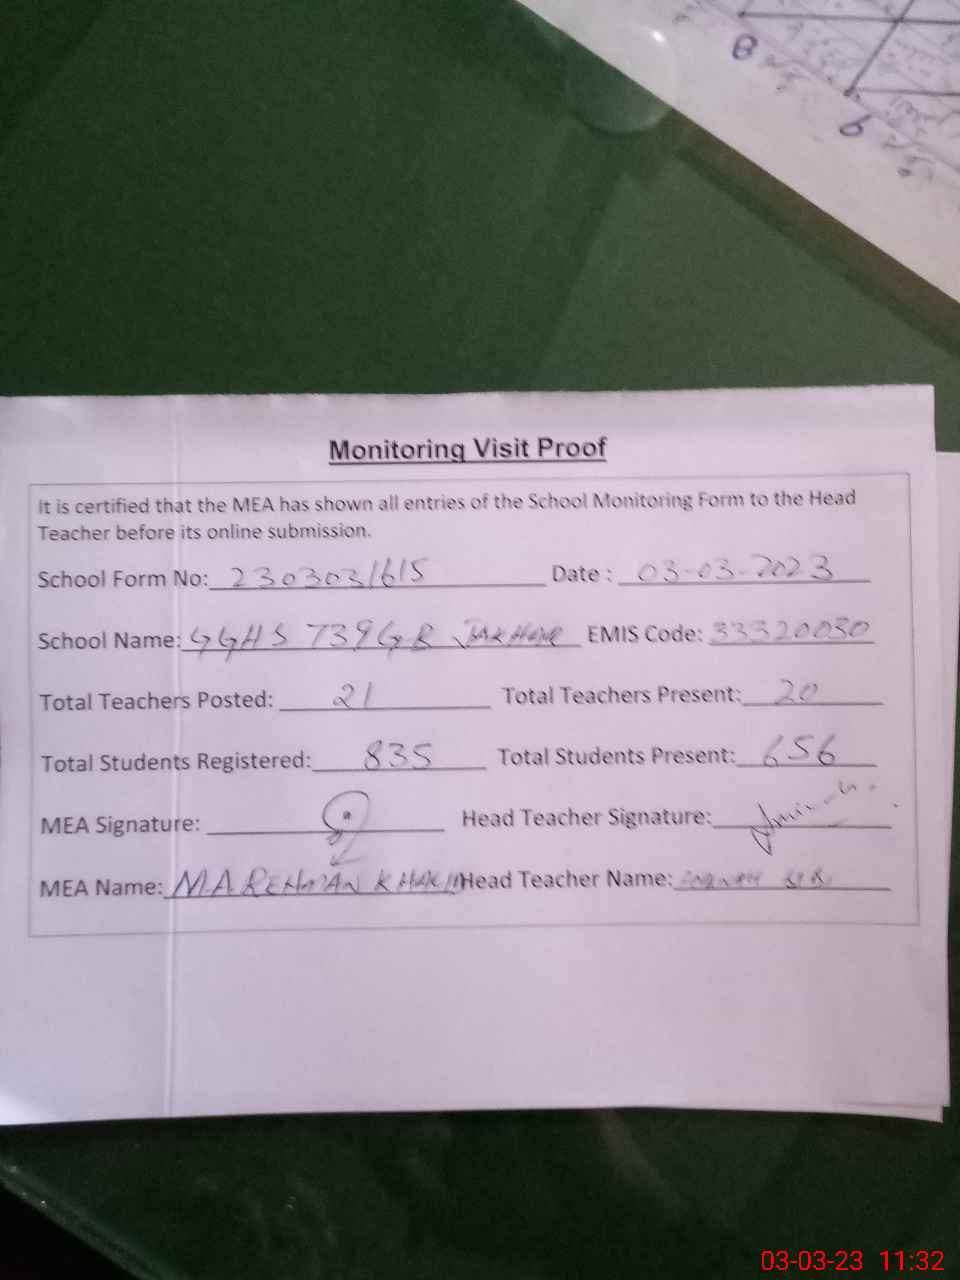 8
6
Monitoring Visit Proof
It is certified that the MEA has shown all entries of the School Monitoring Form to the Head
Teacher before its online submission.
School Form No: 2303031615 Date : 03-03-2023
School Name: GGHS 739GB JAKHAR EMIS Code: 33320030
Total Teachers Posted: 21 Total Teachers Present: 20
Total Students Registered: 835 Total Students Present: 656
MEA Signature: Head Teacher Signature:
MEA Name: M.A REHMAN KHAN Head Teacher Name: BIBI
03-03-23 11:32